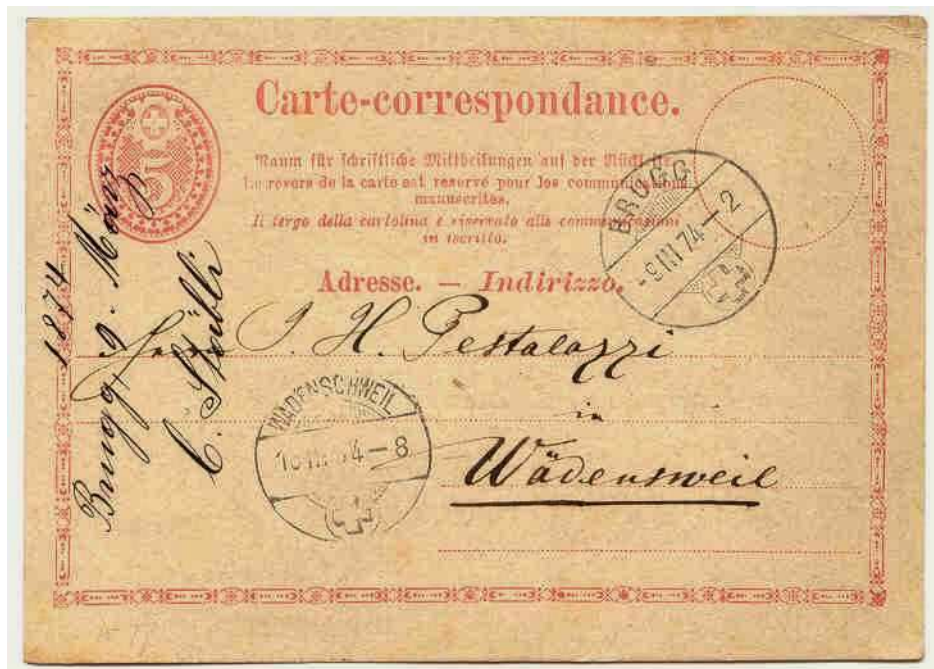 Carte-correspondance.
5
Raum für schriftliche Mittheilungen auf der Rückseite.
Le revers de la carte est reservé pour les communications
manuscrites.
Il tergo della cartolina e riservato alle communicazioni
in iscritto.
Adresse. — Indirizzo.
BRUGG
-9 III 74-2
Herr J. H. Pestalozzi
in
Wädensweil
WADENSCHWEIL
10 III 74-8
1874
Brugg, 9. März
C. Stäbli